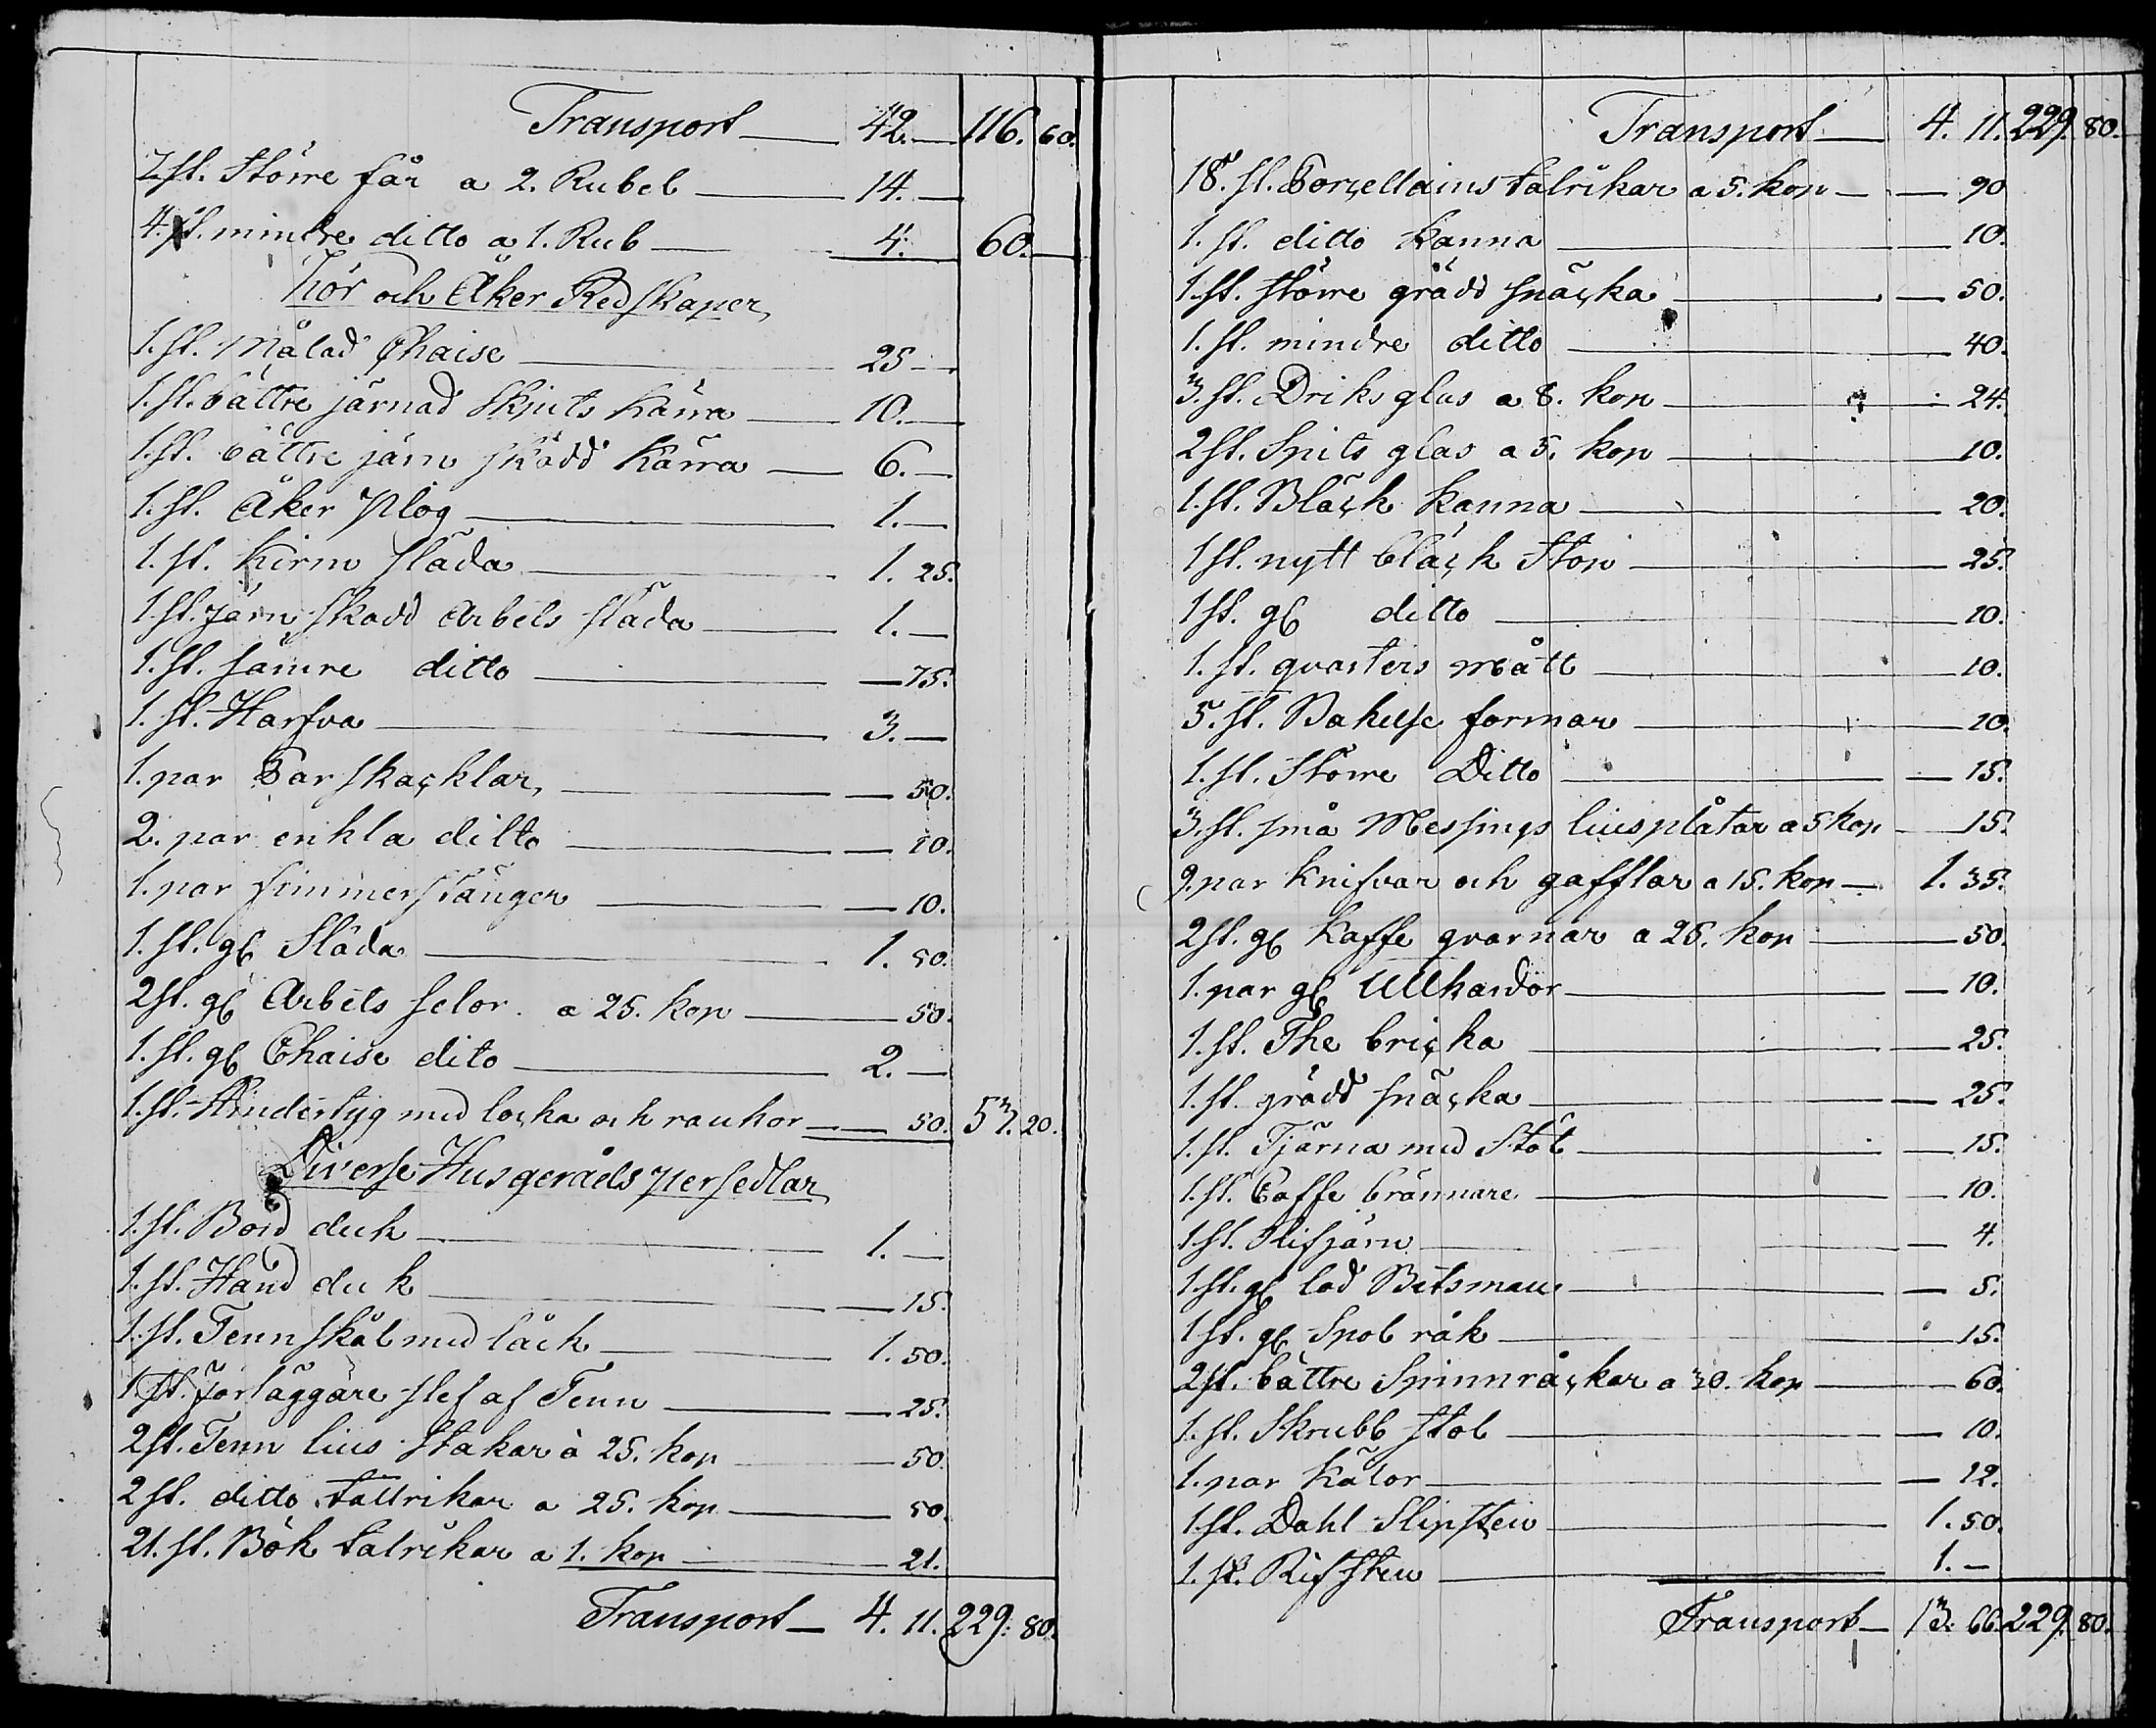 Transport — 42. — 116. 60.
7. st. större får a 2. Rubel — 14. —
4. st. mindre ditto a 1. Rub — 4. — 60. —
Kör och Åker Redskaper
1. st. Målad Chaise — 25 —
1. st. bättre järnad Skjuts kärra — 10. —
1. st. bättre järn skodd Kärra — 6. —
1. st. Åker plog — 1. —
1. st. Kirm släda — 1. 25.
1. st. Järn skodd Arbets släda — 1. —
1. st. sämre ditto — 75.
1. st. Harfva — 3. —
1. par Par skacklar — 50.
2. par enkla ditto — 20.
1. par timmer stänger — 10.
1. st. gl Släda — 1. 50.
2 st. gl Arbets selor a 25. kop — 50.
1. st. gl Chaise dito — 2. —
1. st. Hindertyg med locka och rankor — 50. 53. 20.
Diverse Husgeråds persedlar
1. st. Bord duk — 1. —
1. st. Hand duk — 15.
1. st. Tenn skål med låck — 1. 50.
1 st. förläggare slef af Tenn — 25.
2 st. Tenn lius stakar à 25. kop — 50.
2 st. ditto tallrikar a 25. kop — 50.
21. st. Bök talrikar a 1. kop — 21.
Transport — 4. 11. 229. 80.
Transport — 4. 11. 229. 80.
18. st. Porcellains talrikar a 5. kop — 90
1. st. ditto Kanna — 10.
1. st. större grädd snäcka — 50.
1. st. mindre ditto — 40.
3. st. Driks glas a 8. kop — 24.
2 st. Spits glas a 5. kop — 10.
1. st. Bläck Kanna — 20.
1 st. nytt bläck stop — 25.
1 st. gl ditto — 10.
1. st. qvarters mått — 10.
5. st. Bakelse formar — 20.
1. st. större Ditto — 15.
3. st. små Messings liusplåtar a 5 kop — 15.
9. par Knifvar och gafflar a 15. kop — 1. 35.
2 st. gl Kaffe qvarnar a 25. kop — 50.
1. par gl Ullkardor — 10.
1. st. The bricka — 25.
1. st. grädd snäcka — 25.
1. st. Tjärna med Stöt — 15.
1. st. Caffe brännare — 10.
1 st. Rifjärn — 4.
1. st. gl lod Betsman — 5.
1 st. gl Spol råk — 15.
2 st. bättre Spinnråckar a 30. kop — 60.
1. st. Skrubb stol — 10.
1. par Kälor — 12.
1. st. Dahl Slipsten — 1. 50.
1. st. Rifsten — 1. —
Transport — 13. 66. 229. 80.